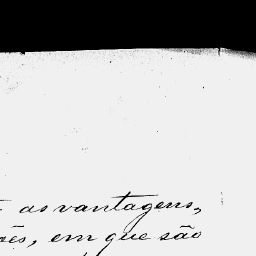 as vantagens,
ões, em que são